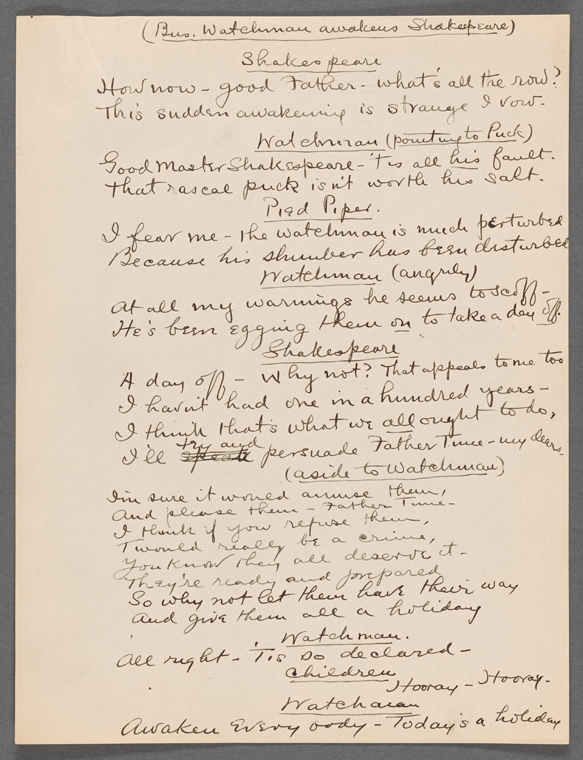 (Bus. Watchman awakens Shakespeare)
Shakespeare
How now - good Father - what's all the row?
This sudden awakening is strange I vow.
Watchman (pointing to Puck)
Good Master Shakespeare - 'tis all his fault.
That rascal puck isn't worth his salt.
Pied Piper.
I fear me - the watchman is much perturbed
Because his slumber has been disturbed
Watchman (angrily)
At all my warnings he seems to scoff -
He's been egging them on to take a day off.
Shakespeare
A day off - Why not? That appeals to me too
I havn't had one in a hundred years -
I think that's what we all ought to do,
I'll try and persuade Father Time - my dears.
(aside to Watchman)
I'm sure it would amuse them,
And please them - Father Time -
I think if you refuse them,
T'would really be a crime,
You know they all deserve it -
They're ready and prepared
So why not let them have their way
And give them all a holiday
Watchman.
All right - 'Tis so declared -
Children
Hooray - Hooray -
Watchman
Awaken Every body - Today's a holiday